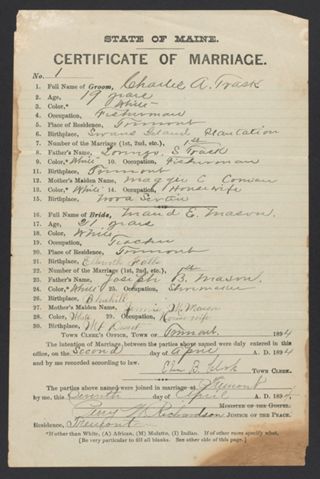 STATE OF MAINE.
CERTIFICATE OF MARRIAGE.
No. 1
1. Full Name of Groom, Charlie A. Trask
2. Age, 19 years
3. Color,* White
4. Occupation, Fisherman
5. Place of Residence, Tremont
6. Birthplace, Swans Island Plantation
7. Number of the Marriage (1st, 2nd, etc.), 1st
8. Father's Name, Lorenzo S. Trask
9. Color,* White 10. Occupation, Fisherman
11. Birthplace, Tremont
12. Mother's Maiden Name, C
13. Color,* White 14. Occupation, Housewife
15. Birthplace, Nova Scotia
16. Full Name of Bride, Maud E. Mason.
17. Age, 21 years
18. Color, White
19. Occupation, Teacher
20. Place of Residence, Tremont
21. Birthplace, Ellsworth Falls
22. Number of the Marriage (1st, 2nd, etc.), 1st
23. Father's Name, Joseph B. Mason.
24. Color,* White 25. Occupation, Shoemaker
26. Birthplace, Bluehill
27. Mother's Maiden Name,
28. Color, White 29. Occupation, House wife
30. Birthplace, Mt Desert
Town Clerk's Office, Town of Tremont, 1894
The intention of Marriage, between the parties above named were duly entered in this
office, on the Second day of April A. D. 1894
and by me recorded according to law.
B. Town Clerk.
The parties above named were joined in marriage at Tremont
by me, this Seventh day of April A. D. 1894.
Minister of the Gospel.
Perry W. Richardson Justice of the Peace.
Residence, Tremont
*If other than White, (A) African, (M) Mulatto, (I) Indian. If of other races specify what.
[Be very particular to fill all blanks. See other side of this page.]